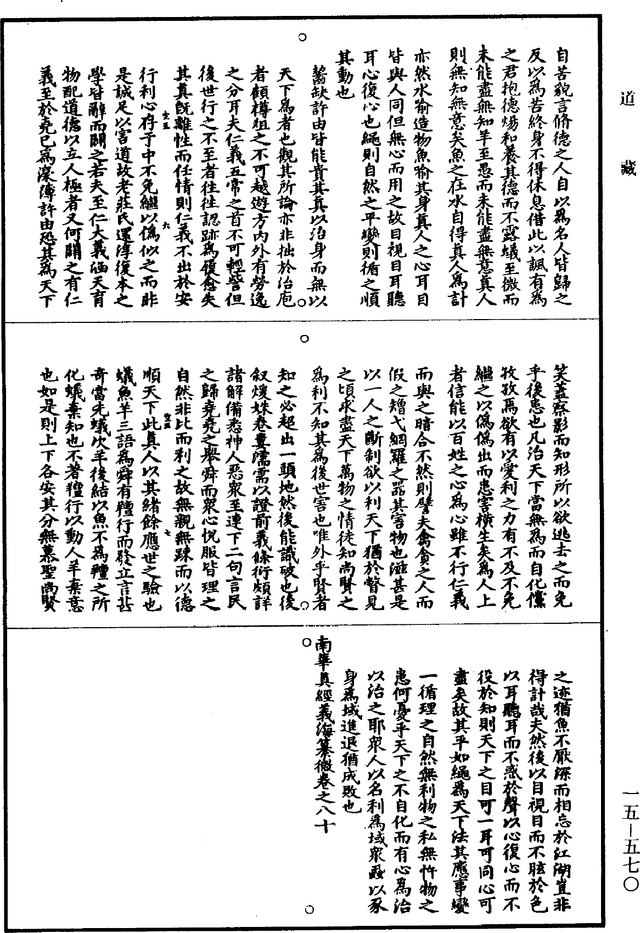 道藏
自苦說言脩德之人自以為名人皆歸之
反以為苦終身不得休息借此以諷有為
之君抱德煬和養其德而不露蟻至微而
未能盡無知羊至愚而未能盡無意真人
則無知無意矣魚之在水自得真人為計
亦然水喻造物魚喻其身真人之心耳目
皆與人同但無心而用之故目視目耳聽
耳心復心也繩則自然之平變則循之順
其動也
齧缺許由皆能貴其真以治身而無以
天下為者也觀其所論亦非拙於治庖
者顧樽俎之不可越遊方內外有勞逸
之分耳夫仁義五常之首不可輕訾但
後世行之不至者往往認跡為履愈失
其真既離性而任情則仁義不出於安
行利心存乎中不免繼以偽似之而非
是誠足以害道故老莊氏還淳復本之
學皆辭而闢之若夫至仁大義涵天育
物配道德以立人極者又何闢之有仁
義至於堯已為澆薄許由恐其為天下
笑蓋察影而知形所以欲逃去之而免
乎後患也凡治天下當無為而自化儻
孜孜焉欲有以愛利之力有不及不免
繼之以偽偽出而患害橫生矣為人上
者信能以百姓之心為心雖不行仁義
而與之暗合不然則譬夫禽貪之人而
假之矰弋網羅之器其害物也滋甚是
以一人之斷制欲以利天下猶於瞥見
之頃求盡天下萬物之情徒知尚賢之
為利不知其為後世害也唯外乎賢者
知之必超出一頭地然後能識破也後
叙煖姝卷婁濡需以證前義條衍頗詳
諸解備悉神人惡眾至連下二句言民
之歸堯堯之舉舜而眾心悅服皆理之
自然非比而利之故無親無踈而以德
順天下此真人以其緒餘應世之驗也
蟻魚羊三語為舜有羶行而發立言甚
奇當先蟻次羊後結以魚不為羶之所
化蟻棄知也不著羶行以動人羊棄意
也如是則上下各安其分無慕聖尚賢
之迹猶魚不厭深而相忘於江湖豈非
得計哉夫然後以目視目而不眩於色
以耳聽耳而不惑於聲以心復心而不
役於知則天下之目可一耳可同心可
盡矣故其平如繩為天下法其應事變
一循理之自然無利物之私無忤物之
患何憂乎天下之不自化而有心為治
以治之耶眾人以名利為域眾蝨以豕
身為域進退猶成敗也
南華真經義海纂微卷之八十
一五—五七〇